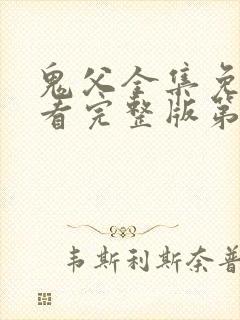 鬼父全集免
看完整版第
韦斯利斯奈普